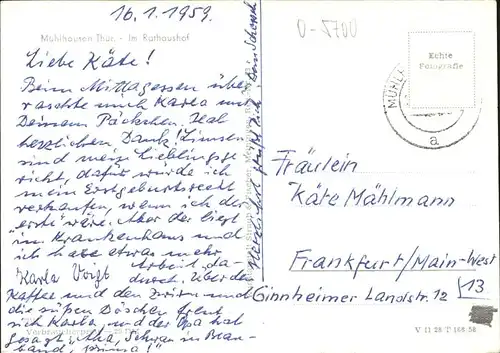 16.1.1959.
D-5700
Mühlhausen Thür. - Im Rathaushof
Liebe Käte!
Beim Mittagessen über
raschte mich Karla mit
Deinem Päckchen. Hab
herzlichen Dank! Linsen
sind mein Lieblingsge
richt, dafür würde ich
mein Erstgeburtsrecht
verkaufen, wenn ich der
"erste" wäre. Aber der liegt
im Krankenhaus und
ich habe etwas mehr
Arbeit da-
durch. Über den
Karla Voigt
Kaffee und den Zwirn und
die süßen Döschen freut
sich Karla, und der Opa hat
gesagt: "Aha, Schwan im Blau-
band, prima!"
Herzlichst grüßt Dich
Echte
Fotografie
MÜHLH
a
Fräulein
Käte Mählmann
Frankfurt/Main-West
Ginnheimer Landstr. 12
13
V 11 28 T 168 58